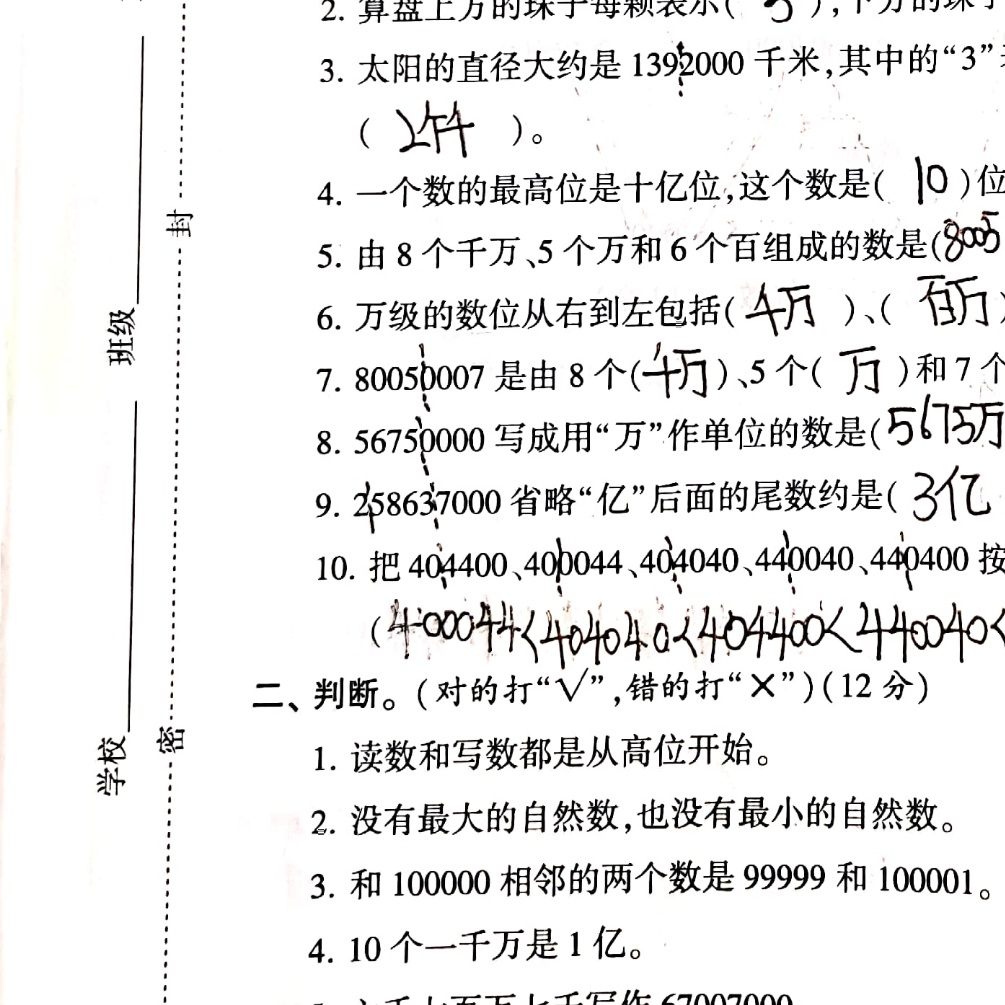 2. 算盘上方的珠子每颗表示( 5 ),下方的珠子
3. 太阳的直径大约是1392000千米,其中的“3”
( 2个千 )。
4. 一个数的最高位是十亿位,这个数是( 10 )位
5. 由8个千万、5个万和6个百组成的数是(8005
6. 万级的数位从右到左包括( 千万 )、( 百万 )
7. 80050007是由8个(千万)、5个( 万 )和7个
8. 56750000写成用“万”作单位的数是(5675万
9. 258637000省略“亿”后面的尾数约是( 3亿
10. 把404400、400044、404040、440040、440400按
(400044<404040<404400<440040<
二、判断。(对的打“√”,错的打“×”)(12分)
1. 读数和写数都是从高位开始。
2. 没有最大的自然数,也没有最小的自然数。
3. 和100000相邻的两个数是99999和100001。
4. 10个一千万是1亿。
67007000
学校
班级
密
封